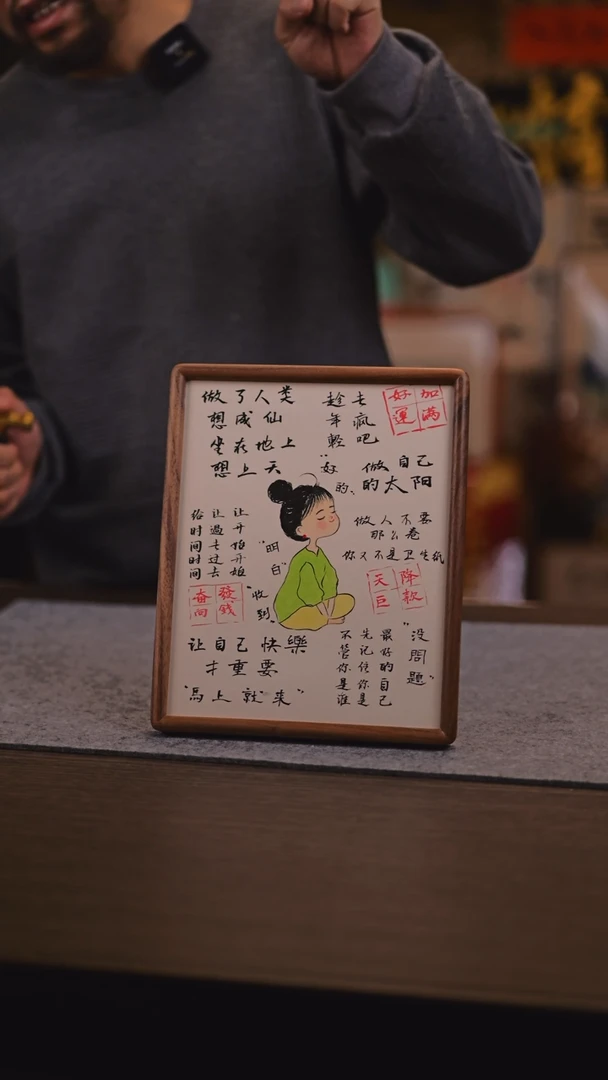 做了人类
想成仙
坐在地上
想上天
趁年轻
去疯吧
好运
加满
"好的"
做自己
的太阳
做人不要
那么卷
你又不是卫生纸
给时间时间
让过去过去
让开始开始
"明白"
"收到"
天降
巨款
奋发
向钱
让自己快樂
才重要
"馬上就来"
最好的自己
先记住你是
不管你是谁
"没問題"